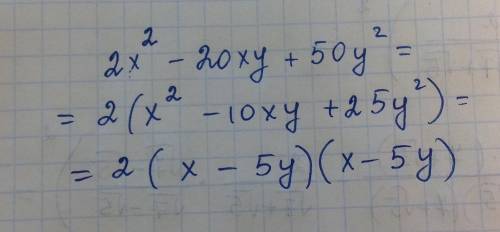 2x² - 20xy + 50y² =
= 2(x² - 10xy + 25y²) =
= 2(x - 5y)(x - 5y)